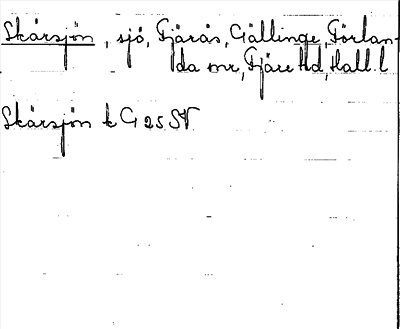 Skärsjön, sjö, Fjärås, Gällinge, Förlan-
da snr, Fjäre Hd, Hall. l
Skärsjön k G 25 SV